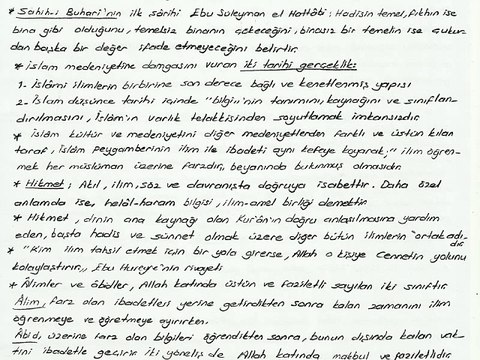 * Sahih-i Buhari'nin ilk şârihi Ebu Süleyman el Hattâbi; Hadisin temel, fıkhın ise
bina gibi olduğunu, temelsiz binanın çökeceğini, binasız bir temelin ise çukur-
dan başka bir değer ifade etmeyeceğini belirtir.
* İslam medeniyetine damgasını vuran iki tarihi gerçeklik:
1- İslâmi ilimlerin birbirine son derece bağlı ve kenetlenmiş yapısı
2- İslam düşünce tarihi içinde "bilgi"nin tanımını, kaynağını ve sınıflan-
dırılmasını, İslâm'ın varlık telakkisinden soyutlamak imkansızdır.
* İslâm kültür ve medeniyetini diğer medeniyetlerden farklı ve üstün kılan
taraf, İslâm Peygamberinin ilim ile ibadeti aynı kefeye koyarak; "ilim öğren-
mek her müslüman üzerine farzdır, beyanında bulunmuş olmasıdır.
* Hikmet; Akıl, ilim, söz ve davranışta doğruya isabettir. Daha özel
anlamda ise, helâl-haram bilgisi, ilim-amel birliği demektir.
* Hikmet, dinin ana kaynağı olan Kur'ân'ın doğru anlaşılmasına yardım
eden, başta hadis ve sünnet olmak üzere diğer bütün ilimlerin "ortak adı-
dır
* "Kim ilim tahsil etmek için bir yola girerse, Allah o kişiye Cennetin yolunu
kolaylaştırır,, Ebu Hureyre'nin rivayeti
* Âlimler ve âbidler, Allah katında üstün ve faziletli sayılan iki sınıftır.
Âlim, farz olan ibadetleri yerine getirdikten sonra kalan zamanını ilim
öğrenmeye ve öğretmeye ayırırken.
Âbid, üzerine farz olan bilgileri öğrendikten sonra, bunun dışında kalan vak-
tini ibadetle geçirir. İki yöneliş de Allah katında makbul ve faziletlidir